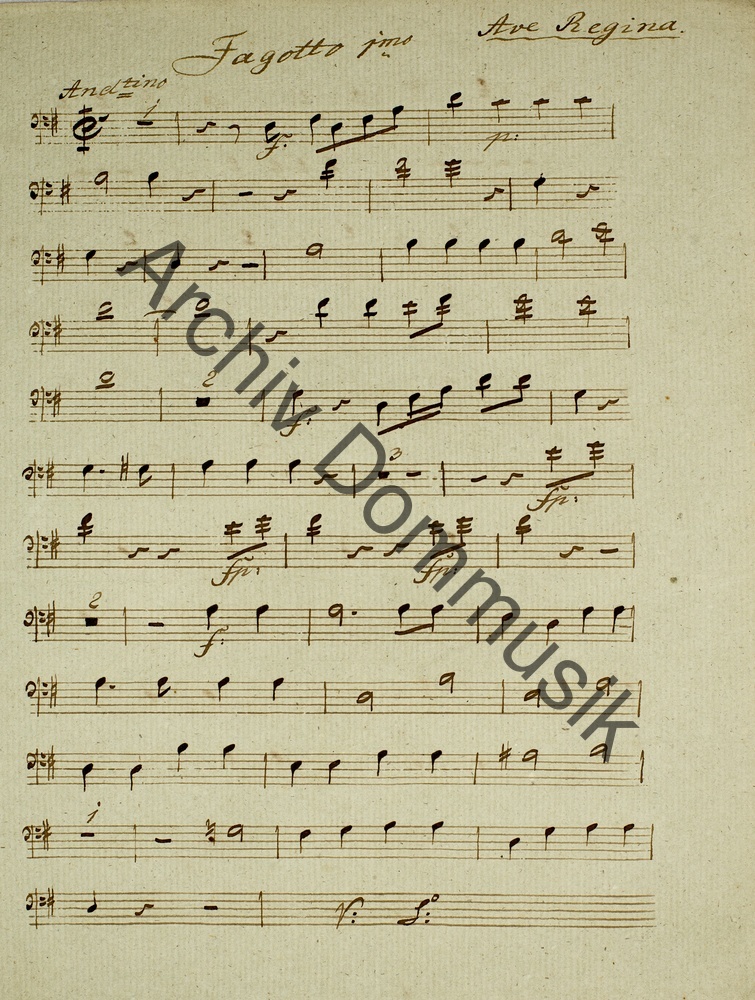 Fagotto jmo Ave Regina.
Andtino
1
f: p:
2
f:
3
fp:
fp: fp:
2
f:
1
V: S:o
Archiv Dommusik